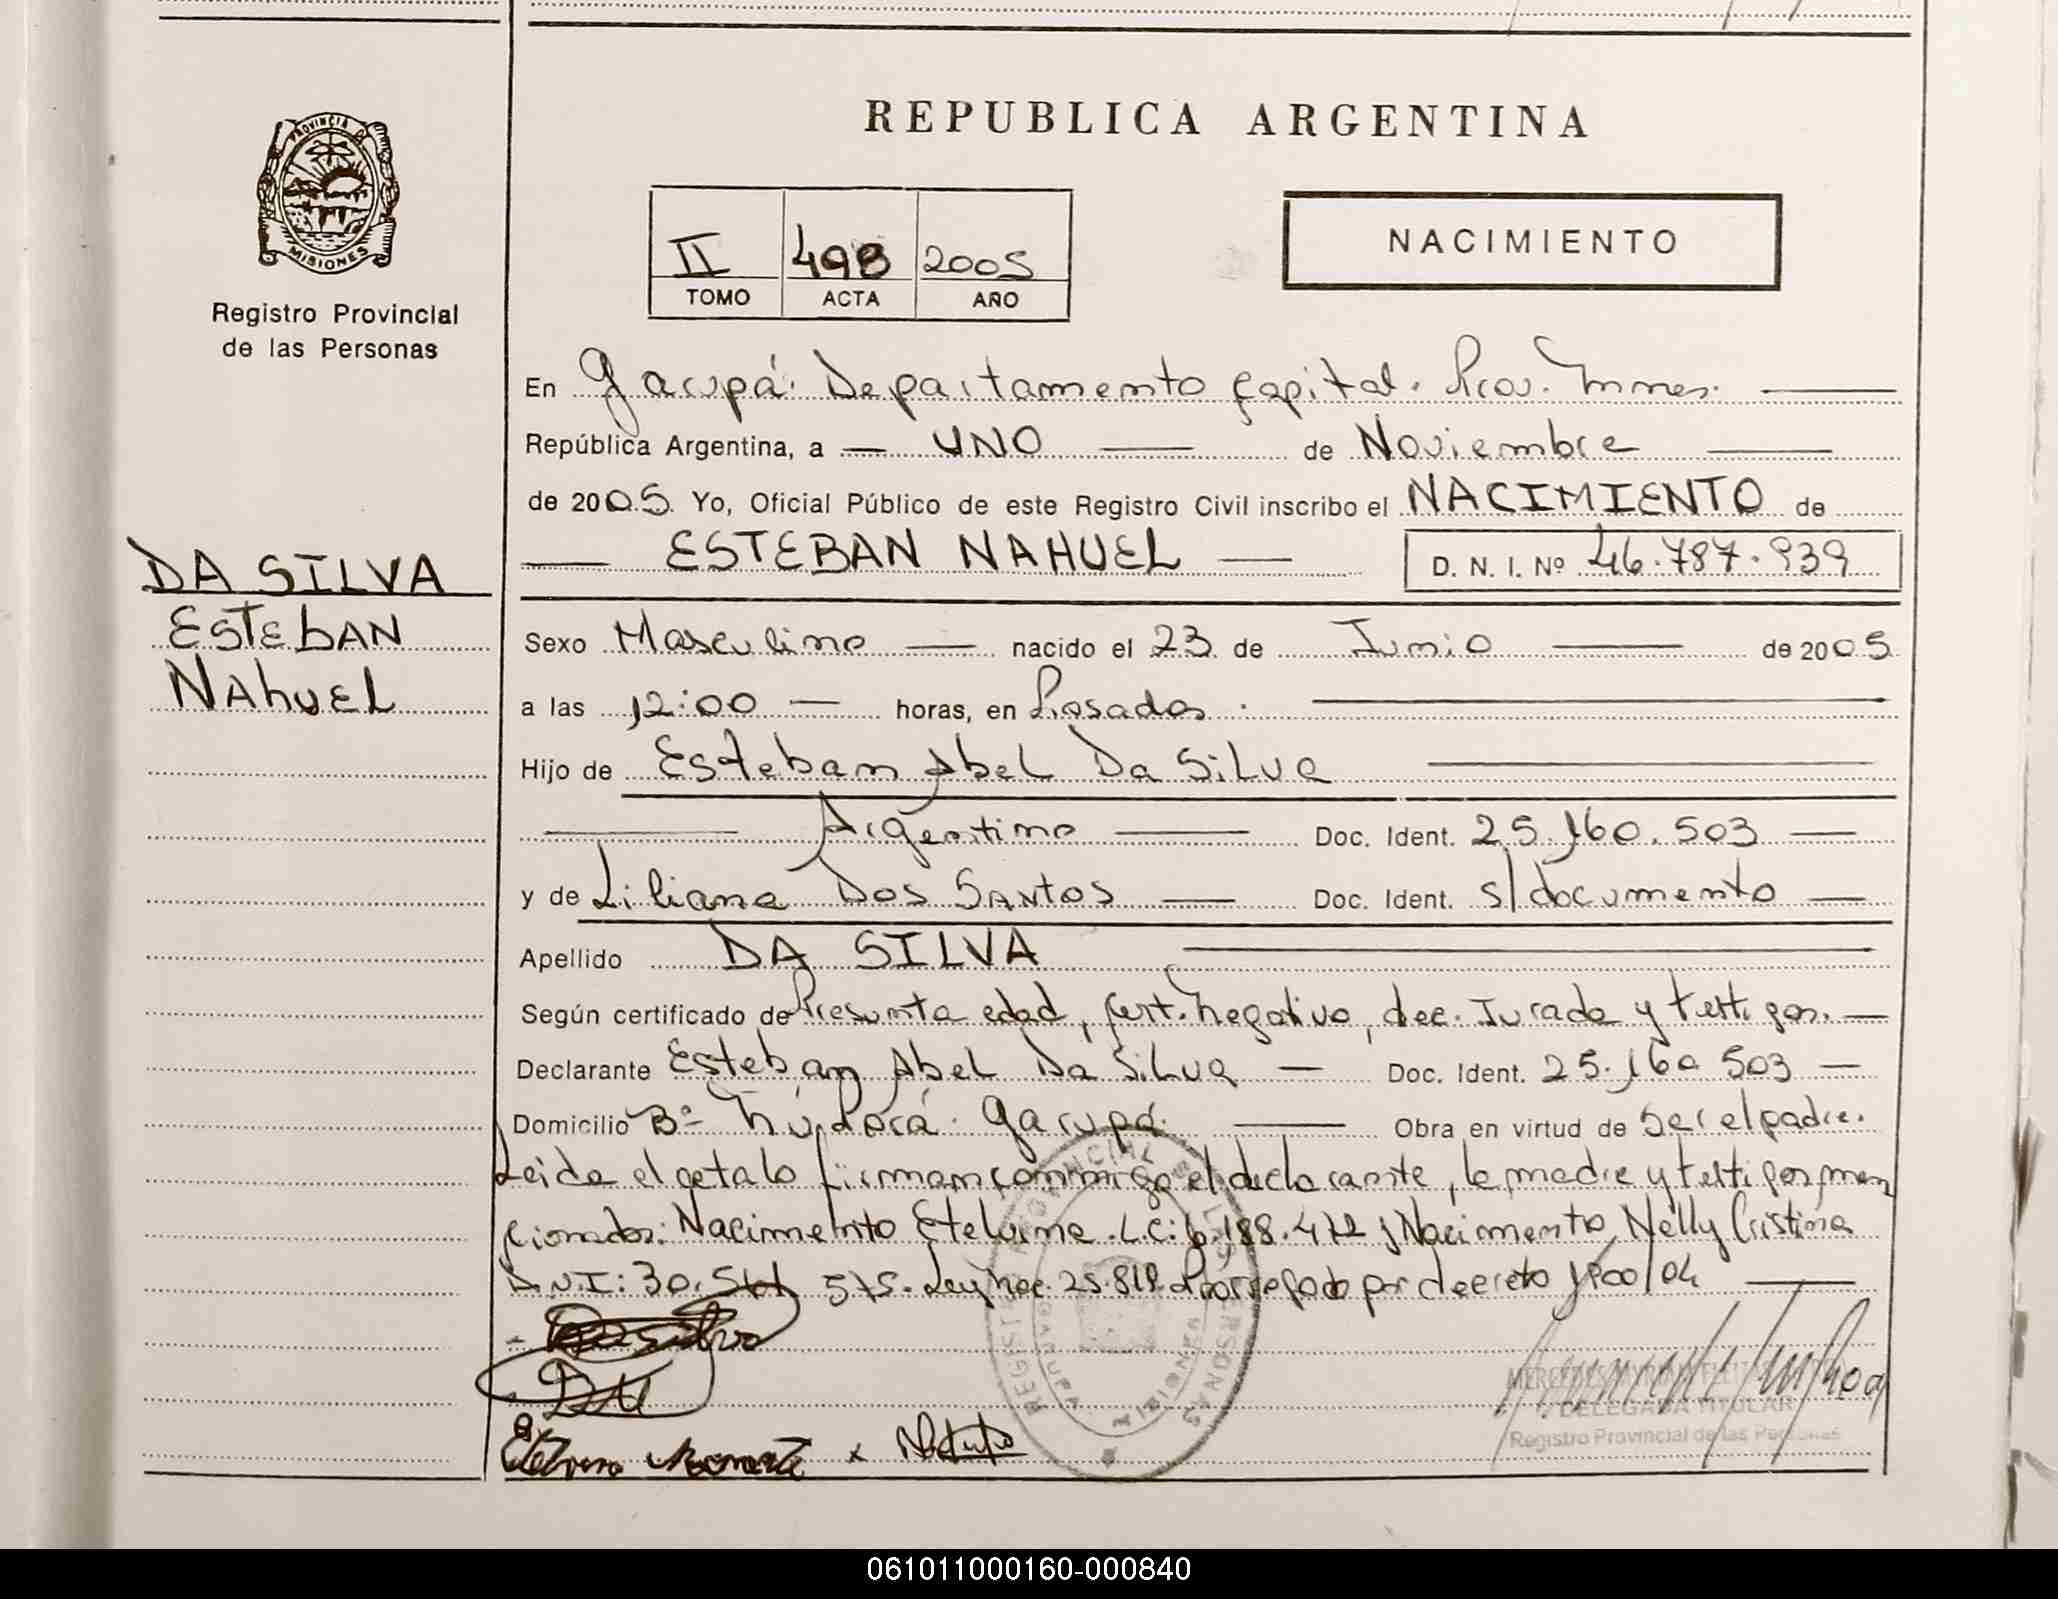 REPUBLICA ARGENTINA
PROVINCIA DE
MISIONES
Registro Provincial
de las Personas
II 498 2005
TOMO ACTA AÑO
NACIMIENTO
En Garupá. Departamento Capital. Prov. Mnes.
República Argentina, a UNO de Noviembre
de 2005. Yo, Oficial Público de este Registro Civil inscribo el NACIMIENTO de
ESTEBAN NAHUEL D. N. I. Nº 46.787.939
DA SILVA
ESTEBAN
NAHUEL
Sexo Masculino nacido el 23 de Junio de 2005
a las 12:00 horas, en Posadas.
Hijo de Esteban Abel Da Silva
Argentino Doc. Ident. 25.160.503
y de Liliana Dos Santos Doc. Ident. s/documento
Apellido DA SILVA
Según certificado de Presunta edad, Cert. negativo, dec. Jurada y testigos.
Declarante Esteban Abel Da Silva Doc. Ident. 25.160 503
Domicilio Bº Ñu Porá. Garupá. Obra en virtud de Ser el padre.
Leida el acta lo firman conmigo el declarante, la madre y testigos men
cionados: Nacimento Etelvina. L.C: 6.188.472 y Nacimento, Nelly Cristina
D.N.I: 30.511 575. Ley nac. 25.819 Prorrogado por decreto 1800/04
REGISTRO PROVINCIAL DE LAS PERSONAS
GARUPA MISIONES
DELEGADA TITULAR
Registro Provincial de las Personas
061011000160-000840